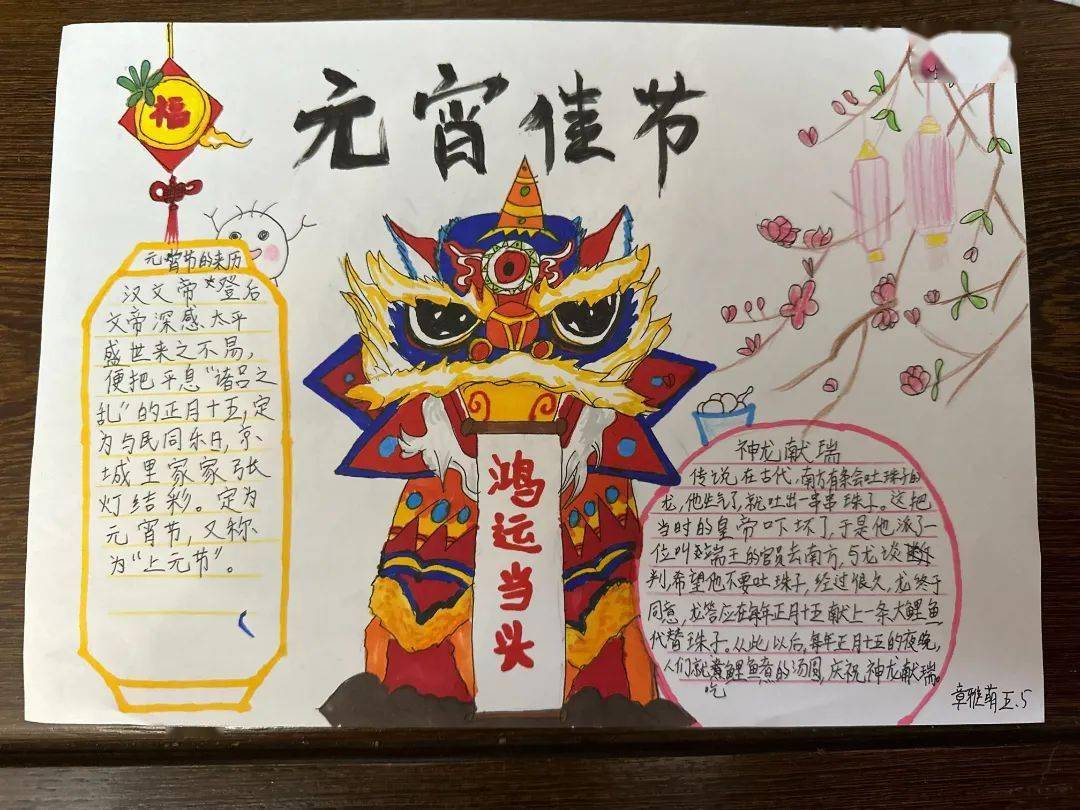 元宵佳节
福
元宵节的来历
汉文帝登后
文帝深感太平
盛世来之不易,
便把平息"诸吕之
乱"的正月十五,定
为与民同乐日,京
城里家家张
灯结彩。定为
元宵节,又称
为"上元节"。
鸿运当头
神龙献瑞
传说在古代,南方有条会吐珠子的
龙,他生气了,就吐出一串串珠子。这把
当时的皇帝吓坏了,于是他派了一
位叫瑞王的官员去南方,与龙谈
判,希望他不要吐珠子,经过很久,龙终于
同意,龙答应在每年正月十五献上一条大鲤鱼
代替珠子。从此以后,每年正月十五的夜晚,
人们就吃鲤鱼煮的汤圆,庆祝神龙献瑞。
章雅萌五.5